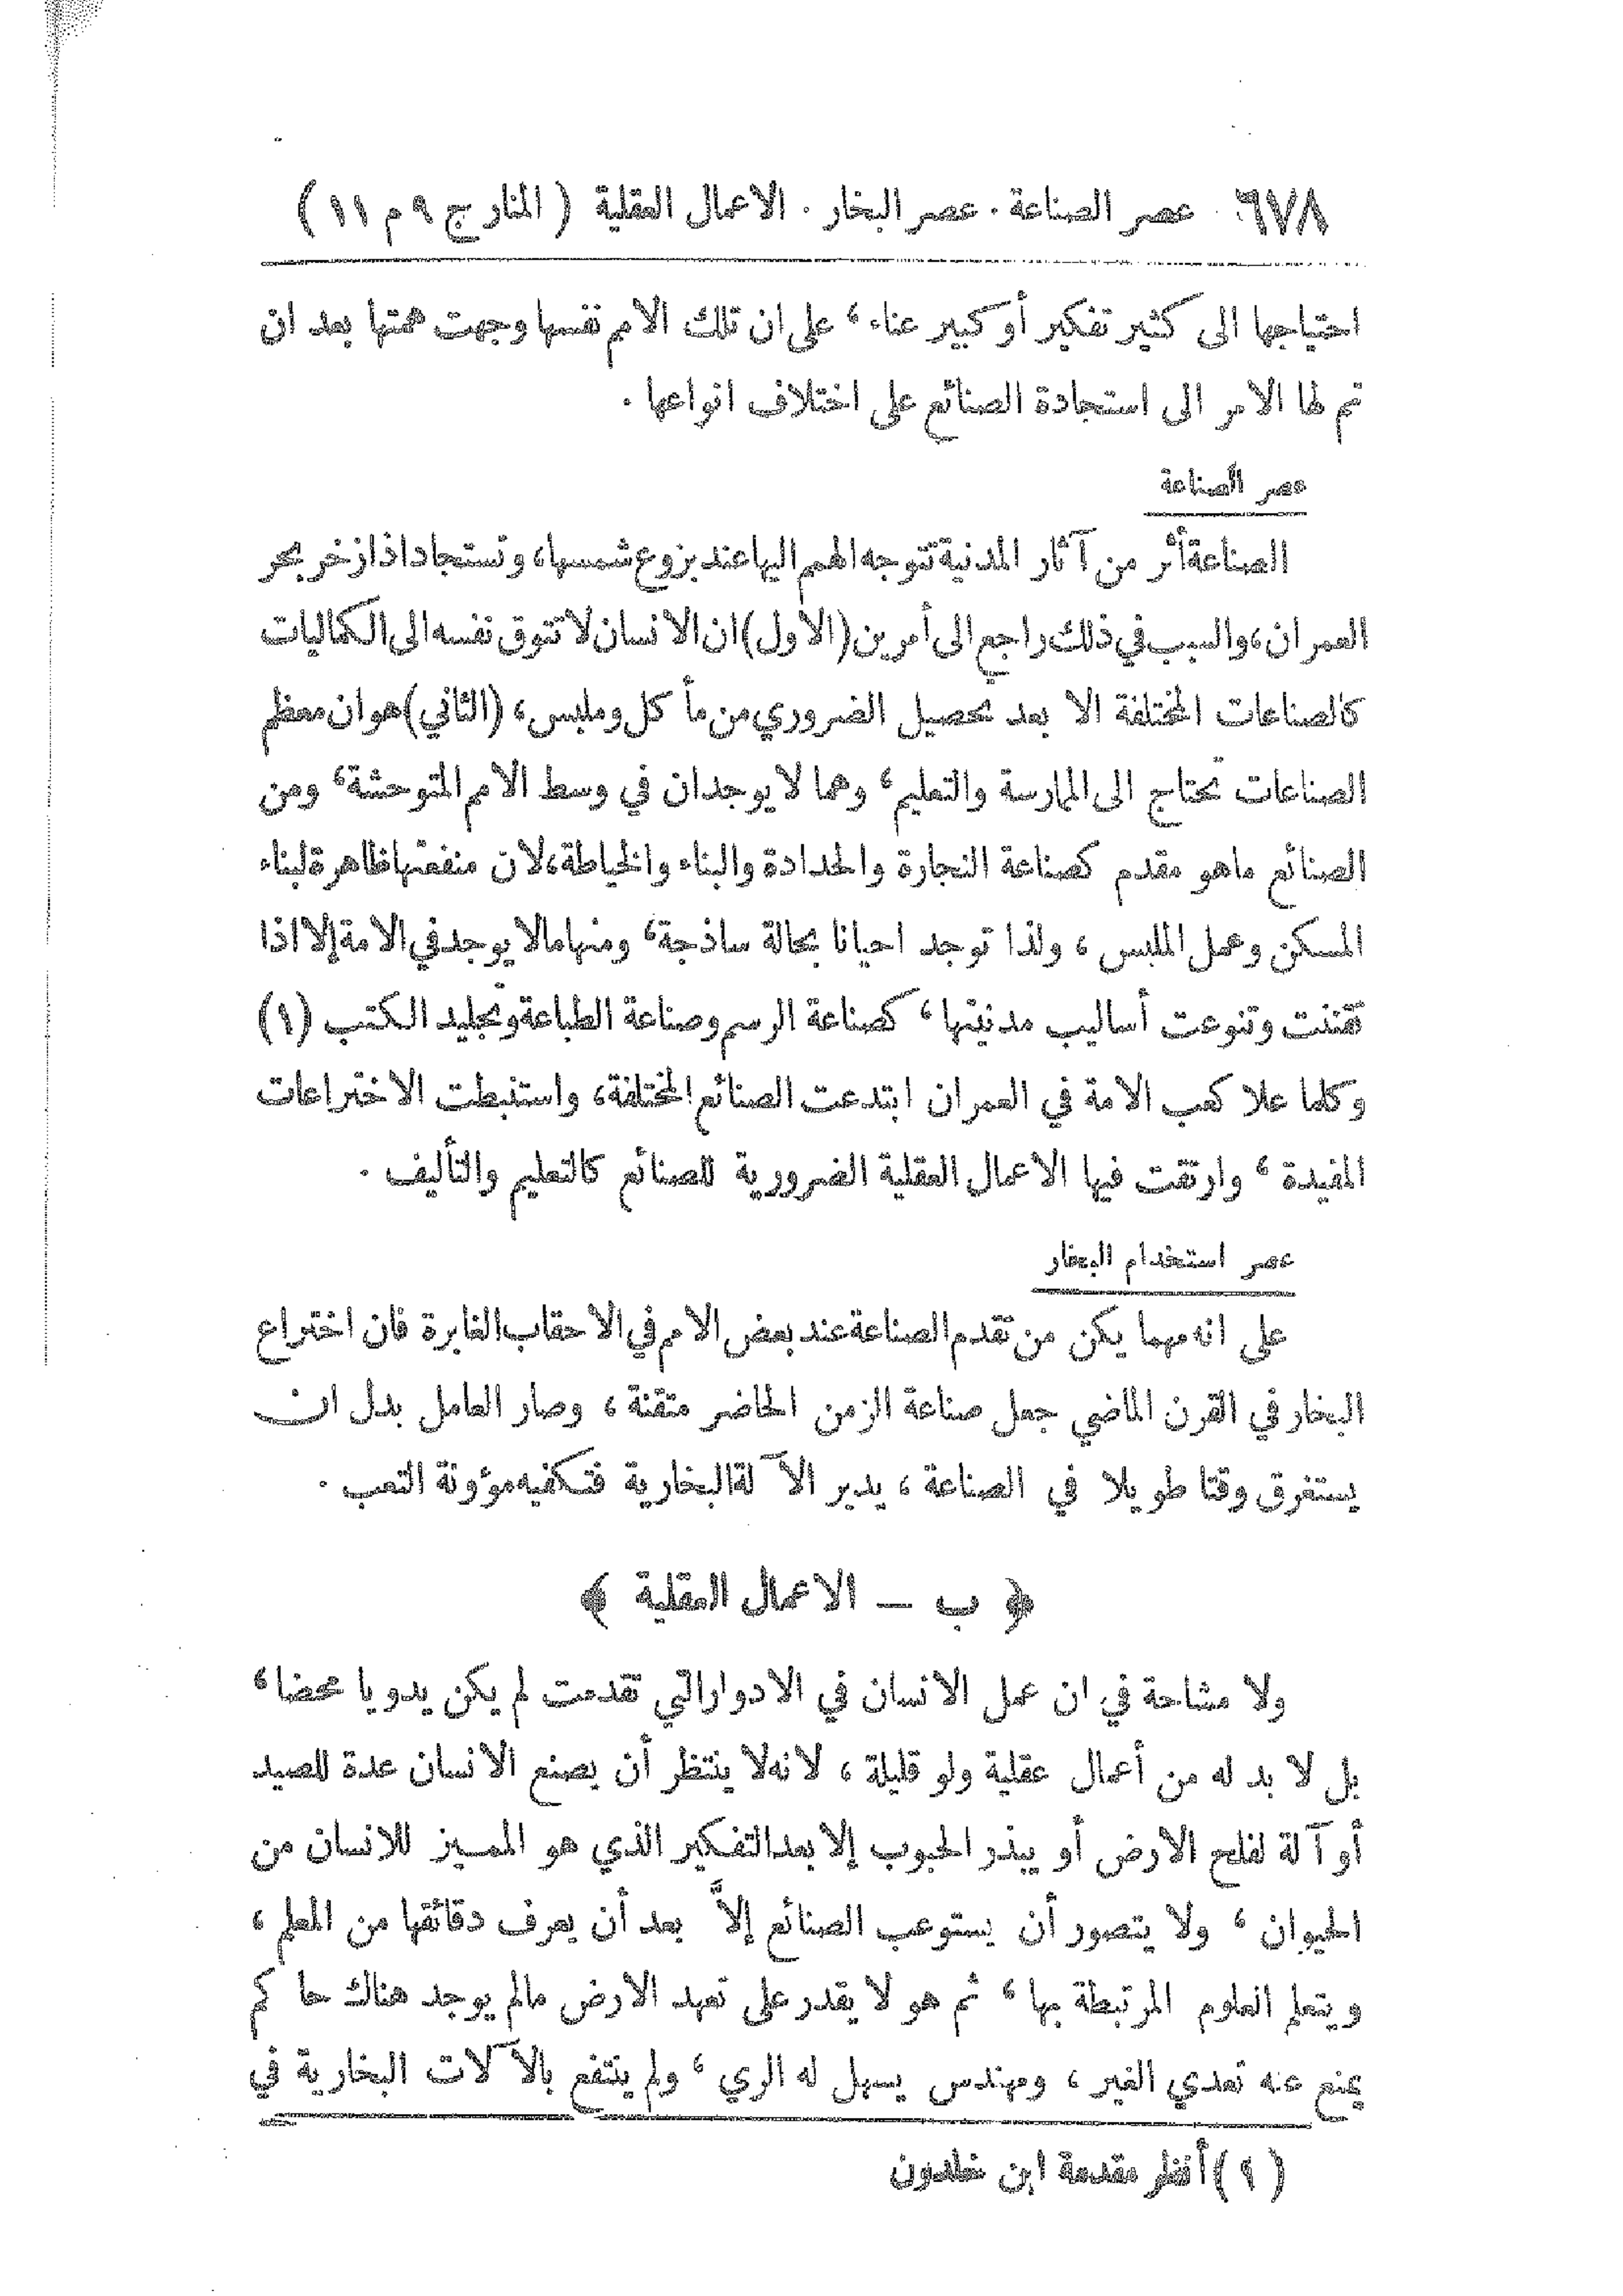 ٦٧٨ عصر الصناعة . عصر البخار . الاعمال العقلية ( المنار ج ٩ م ١١ )
احتياجها الى كثير تفكير أو كبير عناء ، على ان تلك الامم نفسها وجهت همتها بعد ان
تم لها الامر الى استجادة الصنائع على اختلاف انواعها .
عصر الصناعة
الصناعة أثر من آثار المدنية تتوجه الهمم اليها عند بزوغ شمسها ، وتستجاد اذا زخر بحر
العمران ، والسبب في ذلك راجع الى أمرين (الأول) ان الانسان لا تتوق نفسه الى الكماليات
كالصناعات المختلفة الا بعد تحصيل الضروري من مأكل وملبس ، (الثاني) هو ان معظم
الصناعات تحتاج الى الممارسة والتعليم ، وهما لا يوجدان في وسط الامم المتوحشة ، ومن
الصنائع ماهو مقدم كصناعة النجارة والحدادة والبناء والخياطة ، لان منفعتها ظاهرة لبناء
المسكن وعمل الملبس ، ولذا توجد احيانا بحالة ساذجة ، ومنها مالا يوجد في الامة إلا اذا
تفننت وتنوعت أساليب مدنيتها ، كصناعة الرسم وصناعة الطباعة وتجليد الكتب (١)
وكلما علا كعب الامة في العمران ابتدعت الصنائع المختلفة ، واستنبطت الاختراعات
المفيدة ، وارتقت فيها الاعمال العقلية الضرورية للصنائع كالتعليم والتأليف .
عصر استخدام البخار
على انه مهما يكن من تقدم الصناعة عند بعض الامم في الاحقاب الغابرة فان اختراع
البخار في القرن الماضي جعل صناعة الزمن الحاضر متقنة ، وصار العامل بدل ان
يستغرق وقتا طويلا في الصناعة ، يدير الآلة البخارية فتكفيه مؤونة التعب .
﴿ ب — الاعمال العقلية ﴾
ولا مشاحة في ان عمل الانسان في الادوار التي تقدمت لم يكن يدويا محضا ،
بل لا بد له من أعمال عقلية ولو قليلة ، لانه لا ينتظر أن يصنع الانسان عدة للصيد
أو آلة لفلح الارض أو يبذر الحبوب إلا بعد التفكير الذي هو المميز للانسان من
الحيوان ، ولا يتصور أن يستوعب الصنائع إلاَّ بعد أن يعرف دقائقها من المعلم ،
ويتعلم العلوم المرتبطة بها ، ثم هو لا يقدر على تعهد الارض مالم يوجد هناك حاكم
يمنع عنه تعدي الغير ، ومهندس يسهل له الري ، ولم ينتفع بالآلات البخارية في
(١) أنظر مقدمة ابن خلدون